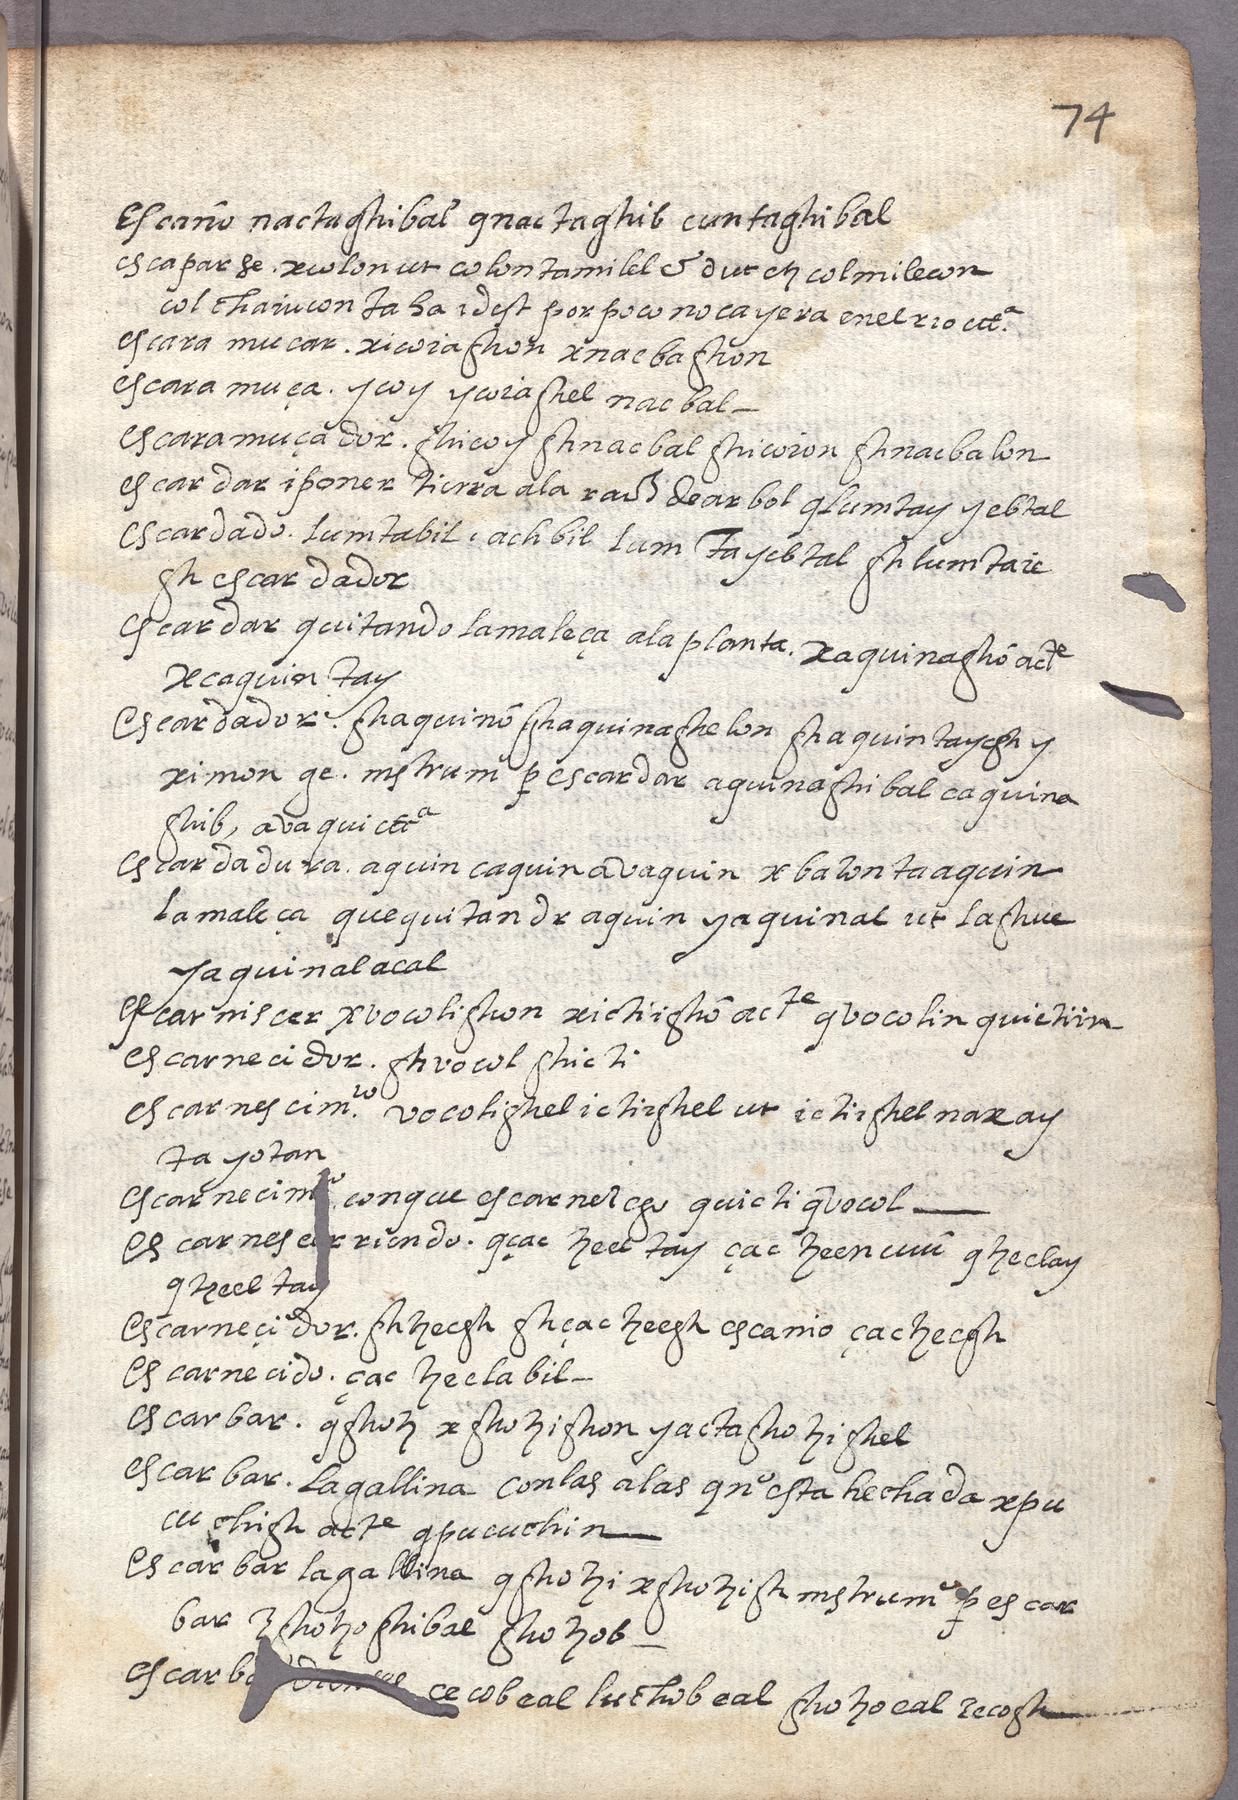 74
Escaño nactaghibal qnactaghib cuntaghibal
escaparse. xcolon ut colontamilel & dut eh colmilecon
col chaiucon ta ha idest por poco no cayera enel rio ctt.a
escara muçar. xicoiaghon xnacbaghon
escara muça. ycoy ycoiaghel nacbal
escaramuçador. ghicoy ghnacbal ghicoion ghnacbalon
escardar i poner tierra ala raiz de arbol qlumtay yebtal
escardado. lumtabil, achbil lum tayebtal ghlumtaic
gh escardador
escardar quitando lamaleça ala planta. xaquinaghō acte
xcaquin tay
Escardador. ghaquinō ghaquinaghelon ghaquintaygh y
ximon ge. mstrum p escardar aquinaghibal caquina
ghib, avaqui ctta
escardadura. aquin caquin avaquin xbalon taaquin
la maleça que quitan dr aquin yaquinal ut laghue
yaquinalacal
Escarniscer xvocolighon xictiighō acte qvocolin quictiin
escarnecidor. ghvocol ghicti
escarnescim.to vocolighel ictiighel ut ictiighel naxay
ta yotan
escarnecim conque escarnezço quicti qvocol
Es carneser riendo. qçac tzeel tay çac tzeen cuū qtzeclay
qtzeel tay
Escarneçidor. ghtzecgh ghçac tzeegh escanio çactzecgh
Escarnecido. çac tzeclabil
escarbar. qghotz xghotzighon yactaghotzighel
escarbar. la gallina con las alas qnō esta hechada xpu
cuchigh acte qpucuchin
Escarbar la gallina qghotzi xghotzigh mstrum p escar
bar ghotzoghibal ghotzob
escarba cecobeal luchobeal ghotzoeal tecogh